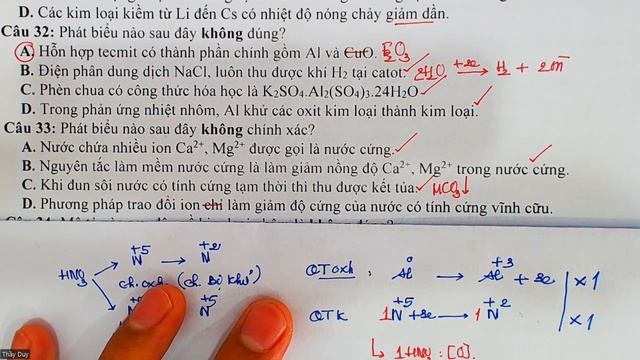 D. Các kim loại kiềm từ Li đến Cs có nhiệt độ nóng chảy giảm dần.
Câu 32: Phát biểu nào sau đây không đúng?
A. Hỗn hợp tecmit có thành phần chính gồm Al và CuO. Fe2O3
B. Điện phân dung dịch NaCl, luôn thu được khí H2 tại catot. 2H2O +2e → H2 + 2OH-
C. Phèn chua có công thức hóa học là K2SO4.Al2(SO4)3.24H2O
D. Trong phản ứng nhiệt nhôm, Al khử các oxit kim loại thành kim loại.
Câu 33: Phát biểu nào sau đây không chính xác?
A. Nước chứa nhiều ion Ca2+, Mg2+ được gọi là nước cứng.
B. Nguyên tắc làm mềm nước cứng là làm giảm nồng độ Ca2+, Mg2+ trong nước cứng.
C. Khi đun sôi nước có tính cứng tạm thời thì thu được kết tủa. MCO3↓
D. Phương pháp trao đổi ion chỉ làm giảm độ cứng của nước có tính cứng vĩnh cữu.
+5 +2
HNO3 N → N
ch. oxh. (ch. bị khử)
+5
N
QT oxh : 0 Al → +3 Al + 3e | x1
QT K 1 +5 N +3e → 1 +2 N | x1
↳ 1 HNO3 : [O].
Thầy Duy